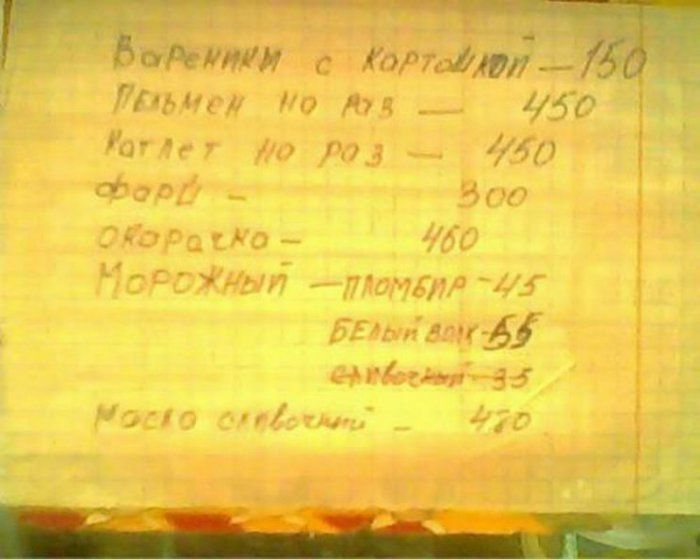 Вареники с картошкой — 150
Пельмен на раз — 450
Катлет на раз — 450
Фарш — 300
окорачка — 460
Морожный — пломбир - 45
белый волк - 55
сливочный - 35
Масло сливочний - 480